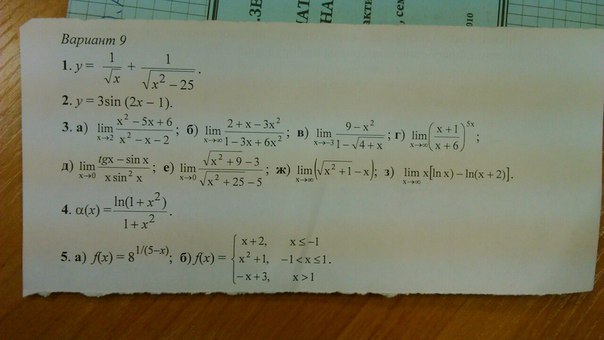 .ЗЕ
НАТ
И
акти
, сем
2010
Вариант 9
1. y = 1/√x + 1/√(x² − 25).
2. y = 3sin (2x − 1).
3. а) lim x→2 (x² − 5x + 6)/(x² − x − 2); б) lim x→∞ (2 + x − 3x²)/(1 − 3x + 6x²); в) lim x→−3 (9 − x²)/(1 − √(4 + x)); г) lim x→∞ ((x + 1)/(x + 6))^(5x);
д) lim x→0 (tgx − sin x)/(x sin² x); е) lim x→0 (√(x² + 9) − 3)/(√(x² + 25) − 5); ж) lim x→∞ (√(x² + 1) − x); з) lim x→∞ x[ln x) − ln(x + 2)].
4. α(x) = ln(1 + x²)/(1 + x²).
5. а) f(x) = 8^(1/(5−x)); б) f(x) = { x + 2, x ≤ −1
x² + 1, −1 < x ≤ 1.
−x + 3, x > 1